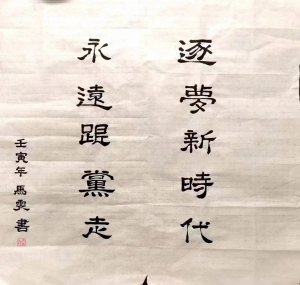 逐夢新時代
永遠跟黨走
壬寅年馬雯書